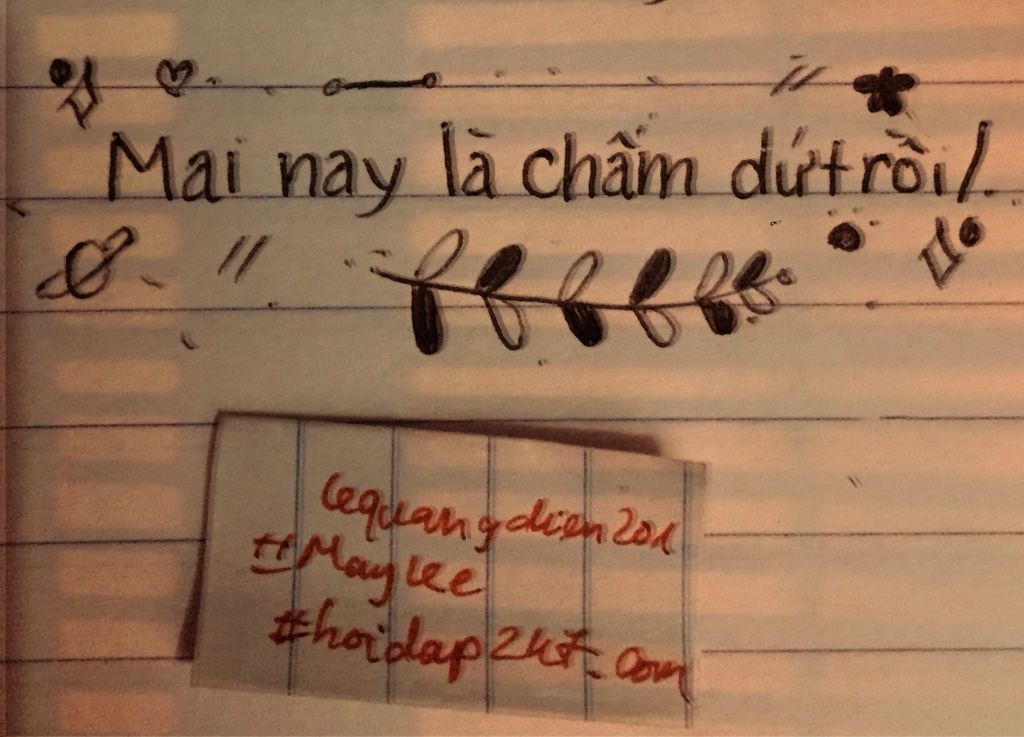 Mai nay là chấm dứt rồi!.
lequangdien201
#Maylee
#hoidap247.com